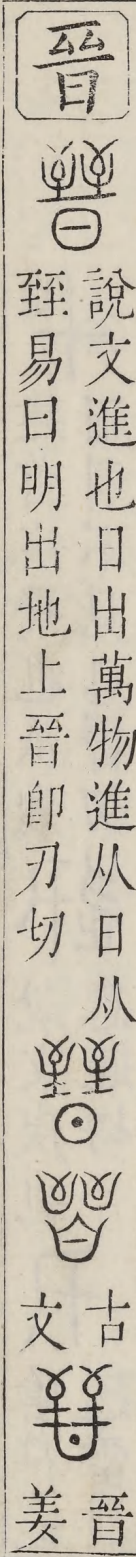 晉
說文進也日出萬物進从日从
臸易曰明出地上晉即刃切
古
文
晉
姜